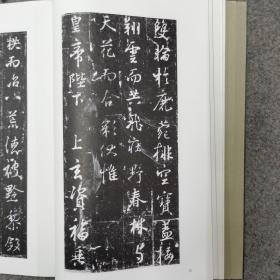 雙輪於鹿菀排空寶盖接
翔雲而共飛莊野春林与
天花而合彩伏惟
皇帝陛下上玄資福垂
拱而治八荒德被黔黎斂